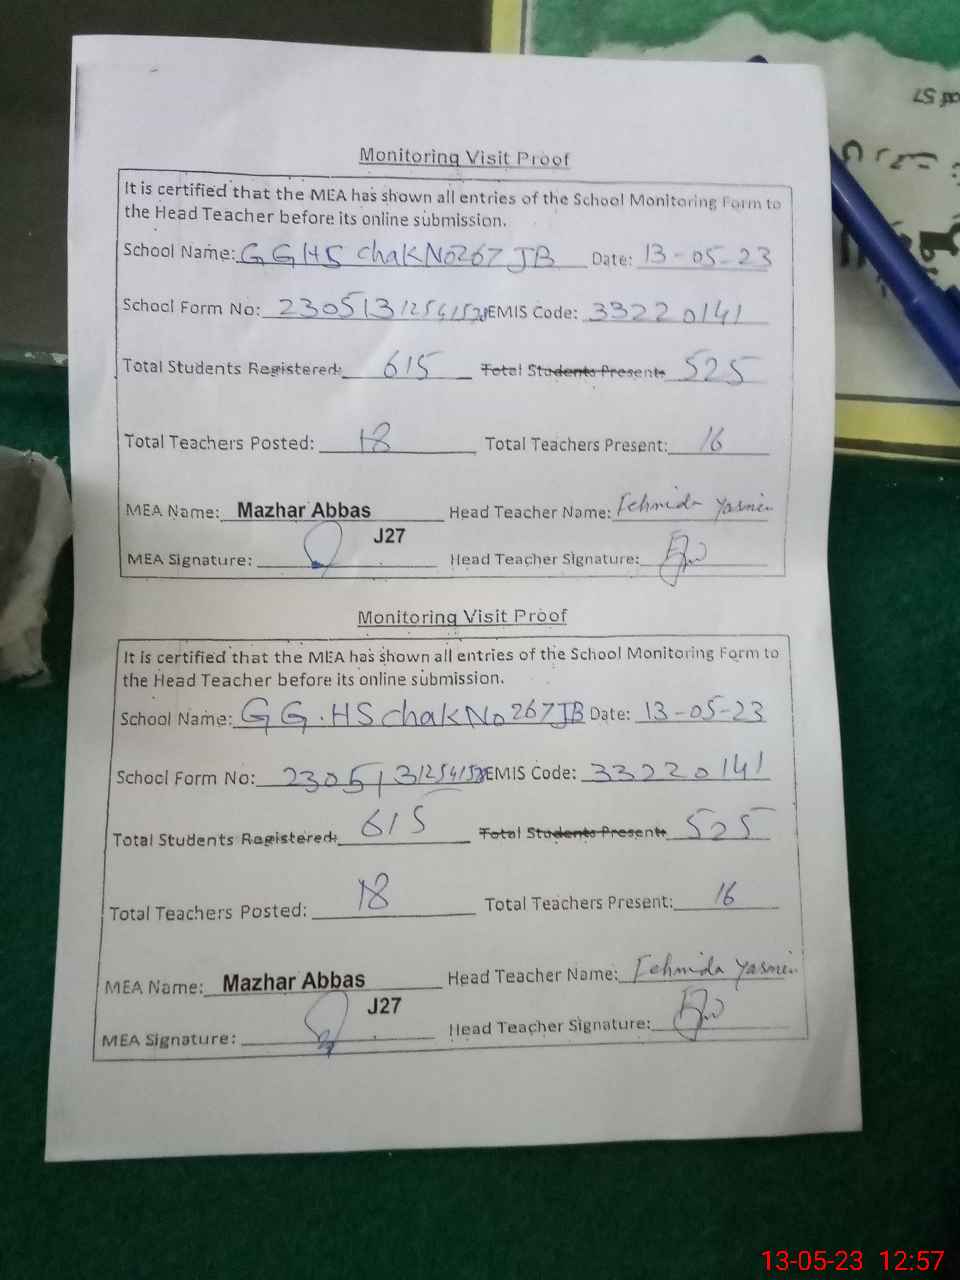 Monitoring Visit Proof
It is certified that the MEA has shown all entries of the School Monitoring Form to
the Head Teacher before its online submission.
School Name: GGHS chak No 267 JB Date: 13-05-23
School Form No: 230513125415 EMIS Code: 33220141
Total Students Registered: 615 Total Students Present: 525
Total Teachers Posted: 18 Total Teachers Present: 16
MEA Name: Mazhar Abbas Head Teacher Name: Fehmida Yasmin
J27
MEA Signature: Head Teacher Signature:
Monitoring Visit Proof
It is certified that the MEA has shown all entries of the School Monitoring Form to
the Head Teacher before its online submission.
School Name: GG.HS chak No 267 JB Date: 13-05-23
School Form No: 230513125415 EMIS Code: 33220141
Total Students Registered: 615 Total Students Present: 525
Total Teachers Posted: 18 Total Teachers Present: 16
MEA Name: Mazhar Abbas Head Teacher Name: Fehmida Yasmin
J27
MEA Signature: Head Teacher Signature:
13-05-23 12:57